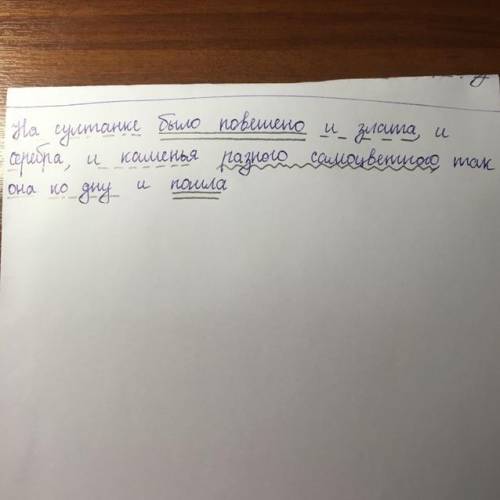 На султанке было повешено и злата, и
серебра, и каменья разного самоцветного так
она ко дну и пошла